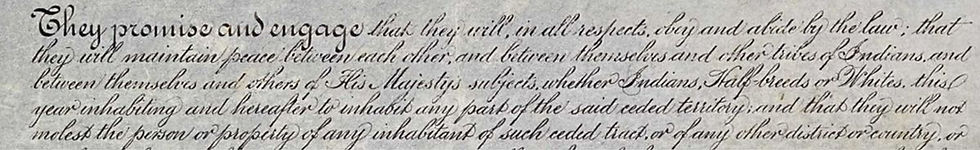 They promise and engage that they will, in all respects, obey and abide by the law; that
they will maintain peace between each other, and between themselves and other tribes of Indians, and
between themselves and others of His Majesty's subjects, whether Indians, Half-breeds or Whites, this
year inhabiting and hereafter to inhabit any part of the said ceded territory; and that they will not
molest the person or property of any inhabitant of such ceded tract, or of any other district or country, or